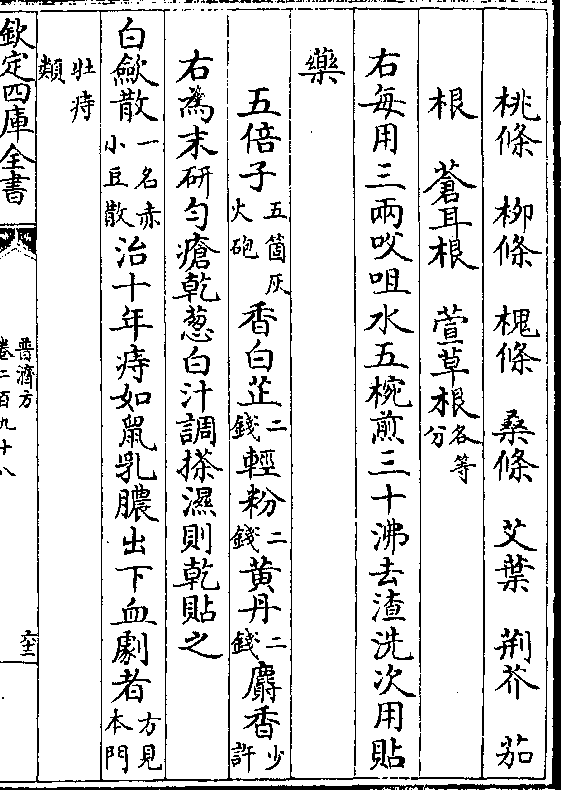 桃條 柳條 槐條 桑條 艾葉 荆芥 茄
根 蒼耳根 萱草根各等分
右每用三兩㕮咀水五椀煎三十沸去渣洗次用貼
藥
五倍子五箇灰火砲 香白芷二錢 輕粉二錢 黄丹二錢 麝香少許
右為末研匀瘡乾葱白汁調搽濕則乾貼之
白歛散一名赤小豆散 治十年痔如鼠乳膿出下血劇者方見本門
牡痔類
欽定四庫全書
普濟方
卷二百九十八